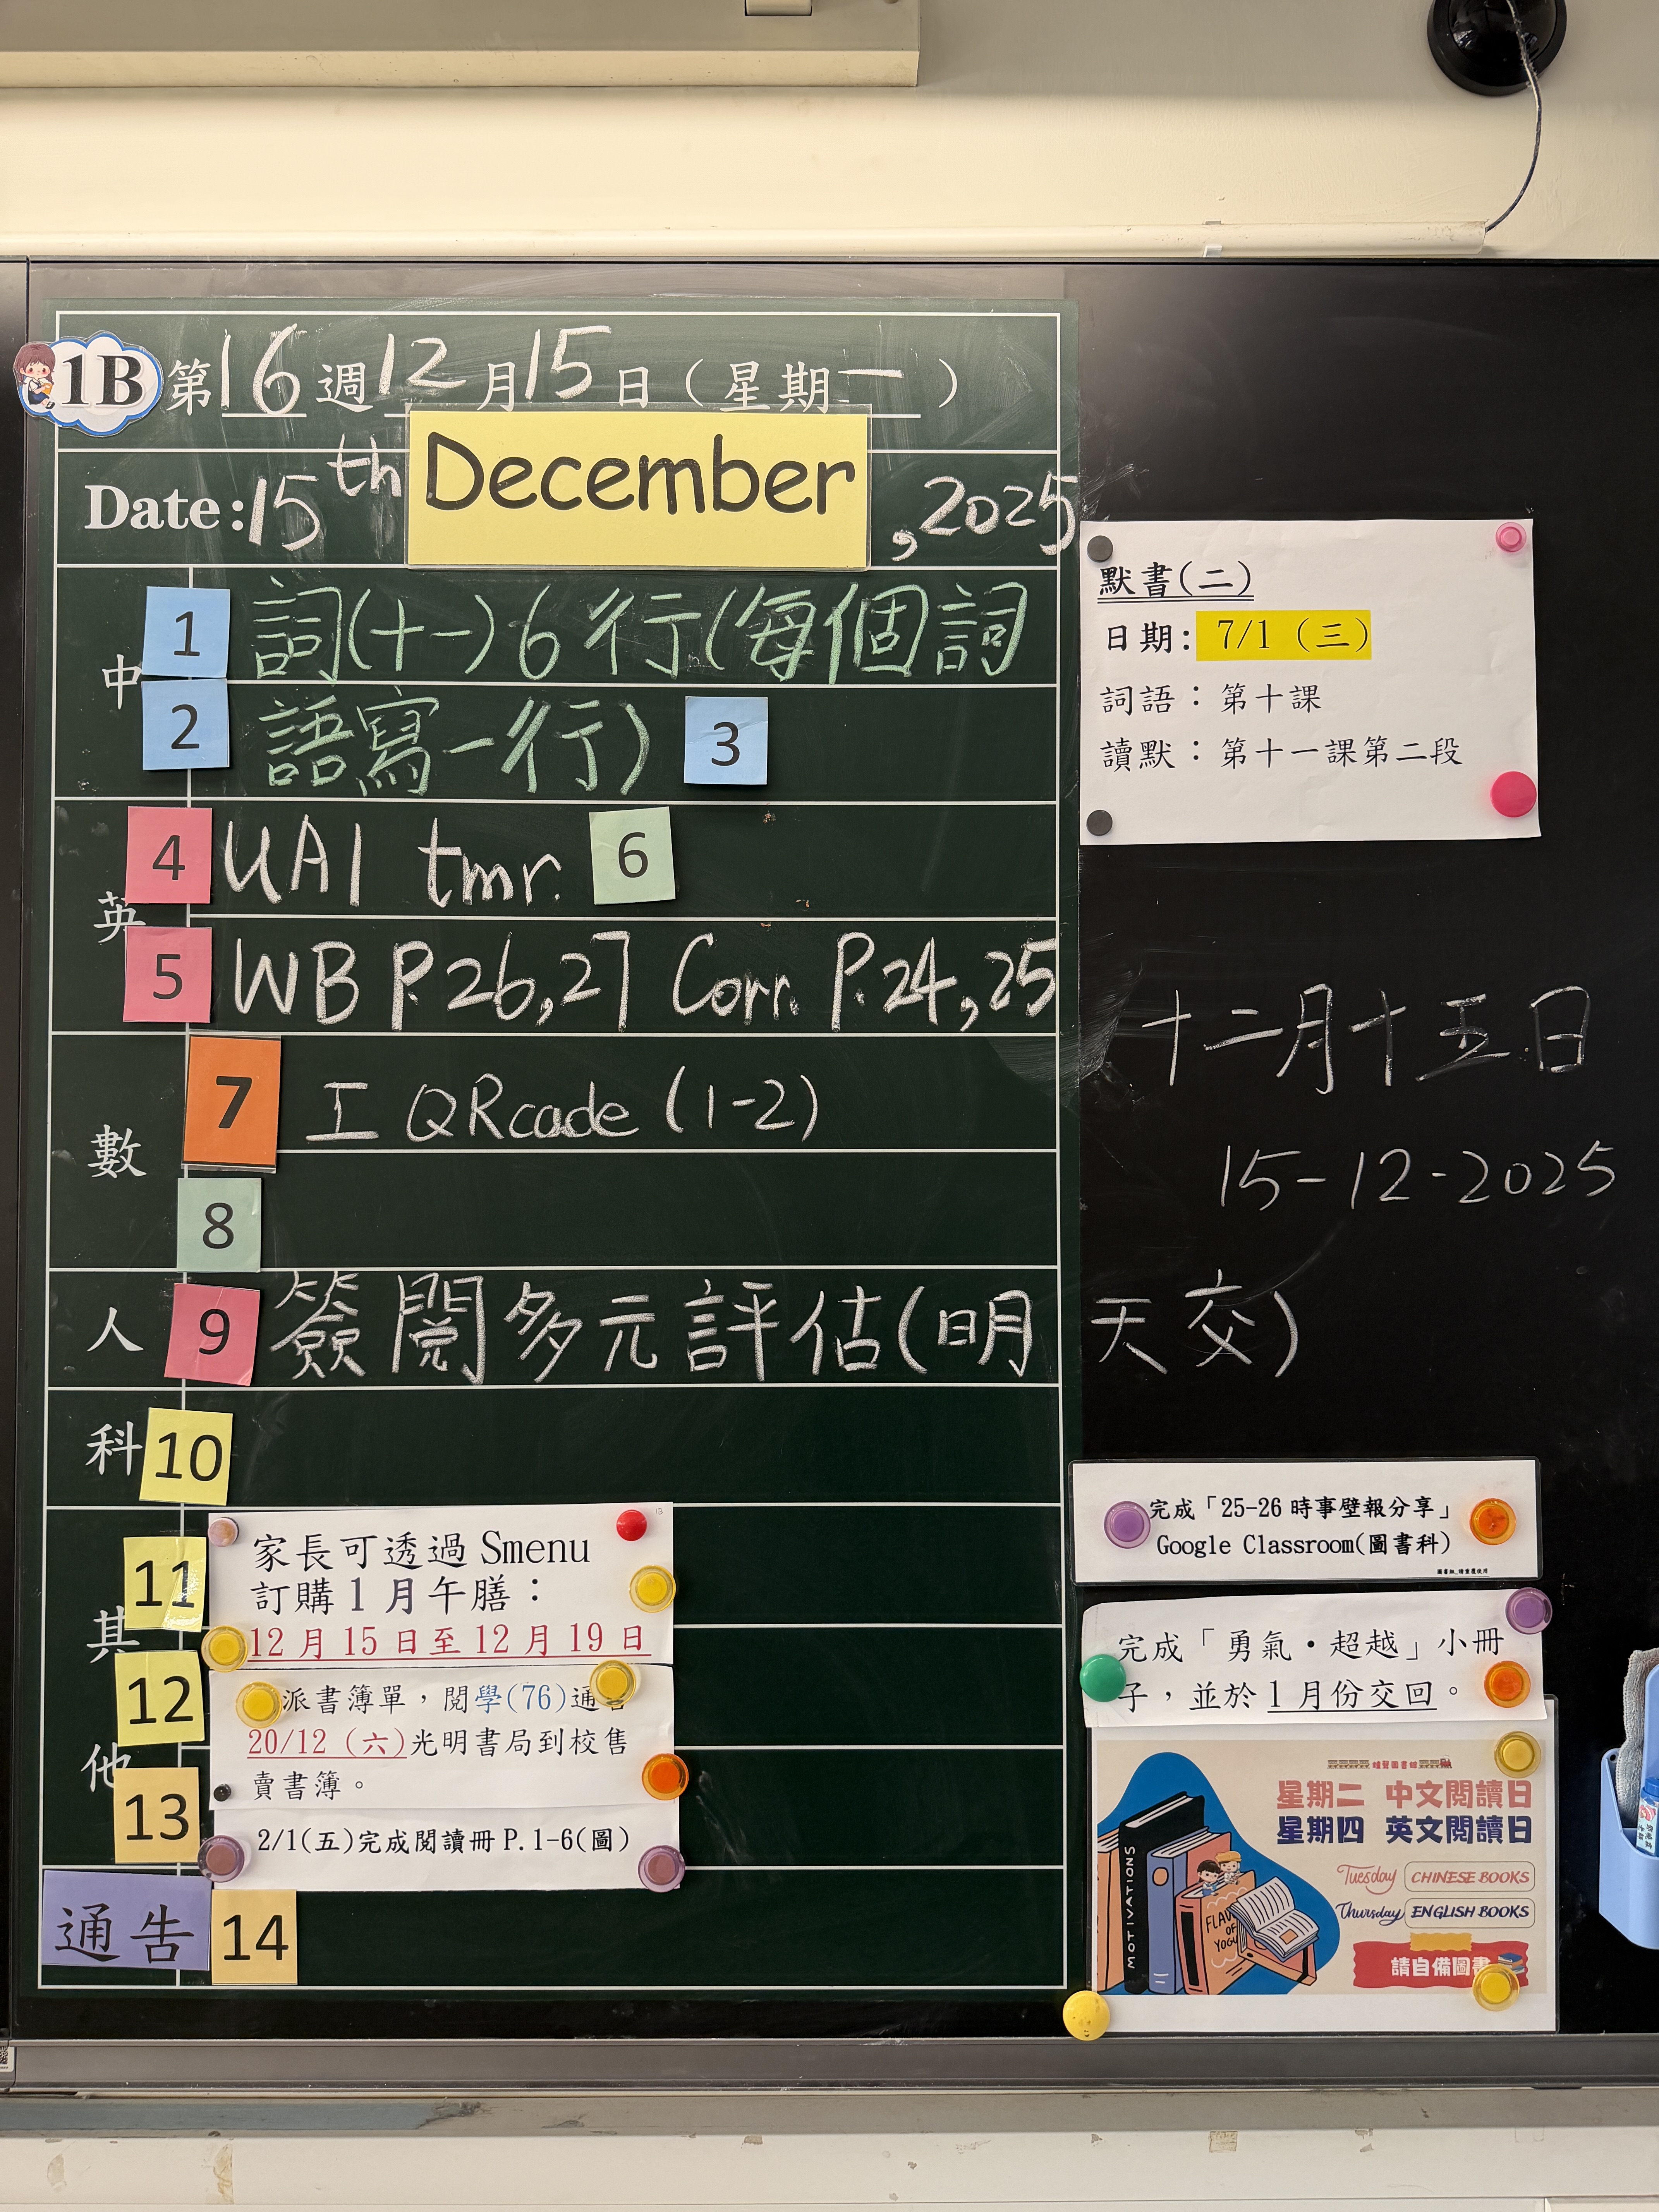 1B 第16週12月15日（星期一）
Date:15th December,2025
中
1 詞(十一)6行(每個詞
2 語寫一行) 3
英
4 UA1 tmr. 6
5 WB P.26,27 Corr. P.24,25
數
7 工 QRcade (1-2)
8
人 9 簽閱多元評估(明天交)
科 10
其他
11
家長可透過 Smenu
訂購1月午膳：
12月15日至12月19日
12
派書簿單，閱學(76)通告
20/12（六)光明書局到校售
賣書簿。
13
2/1(五)完成閱讀冊 P.1-6(圖)
通告 14
默書(二)
日期: 7/1（三）
詞語：第十課
讀默：第十一課第二段
十二月十五日
15-12-2025
完成「25-26 時事壁報分享」
Google Classroom(圖書科)
完成「勇氣・超越」小冊
子，並於1月份交回。
星期二 中文閱讀日
星期四 英文閱讀日
Tuesday CHINESE BOOKS
Thursday ENGLISH BOOKS
請自備圖書
MOTIVATIONS
FLAV
OF
YOGU